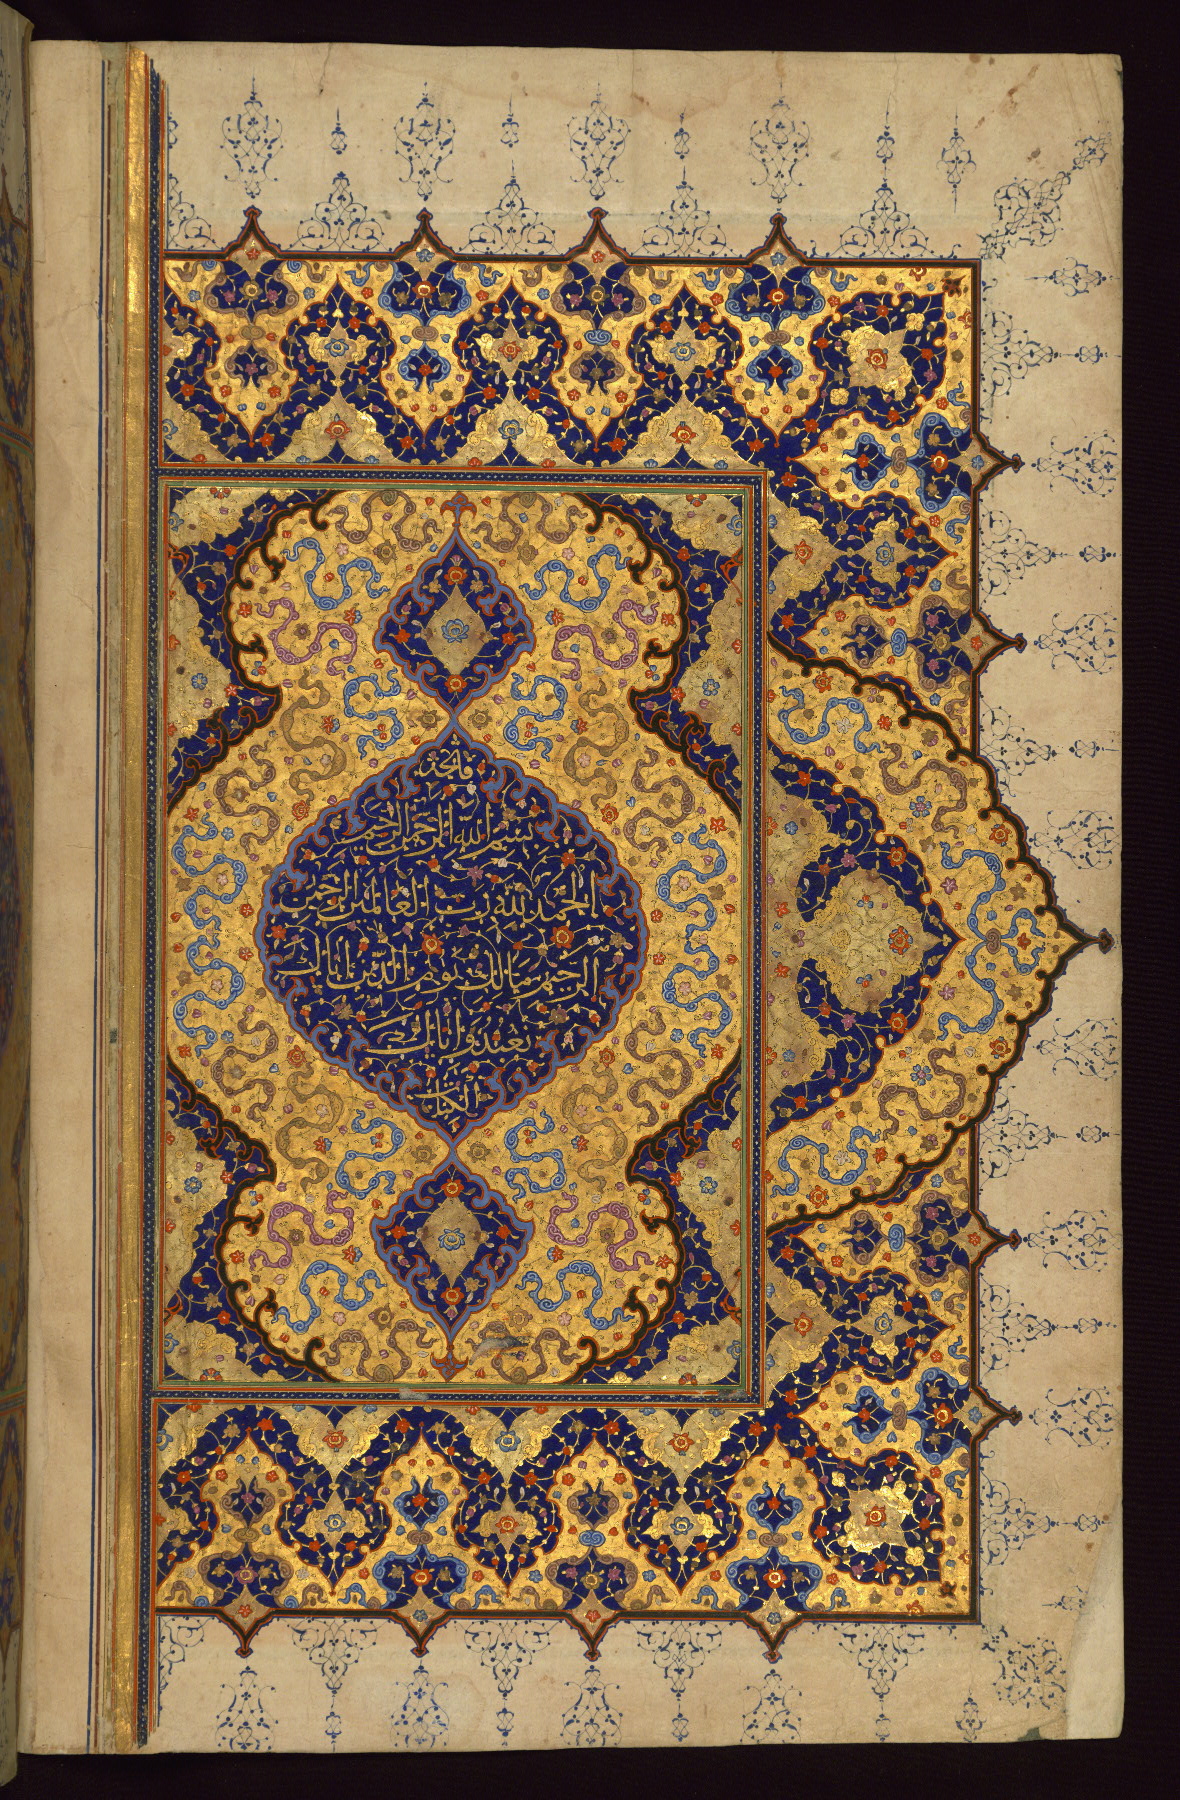 فاتحة
بسم الله الرحمن الرحيم
الحمد لله رب العالمين الرحمن
الرحيم مالك يوم الدين اياك
نعبد واياك
الكتاب